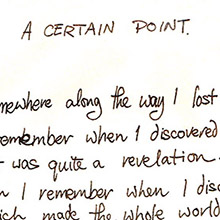 A CERTAIN POINT.
mewhere along the way I lost
remember when I discovered
t was quite a revelation.
n I remember when I disc
ich made the whole world